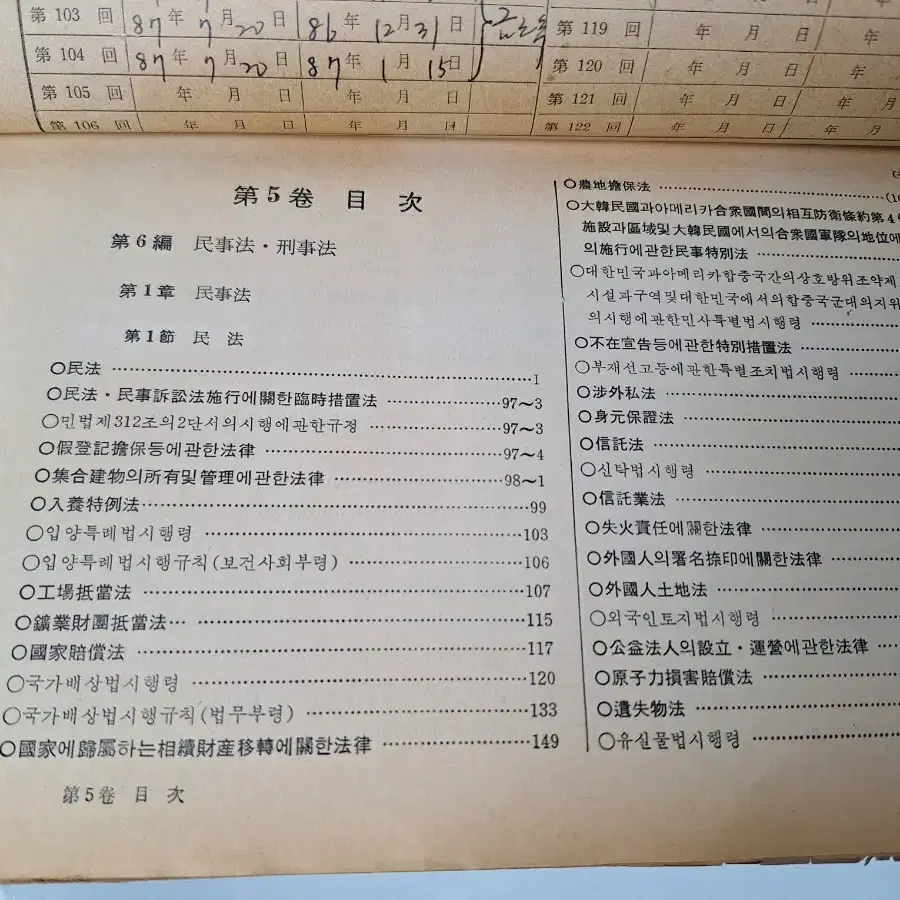 第 103 回 87 年 7 月 20 日 86 年 12 月 31 日
第 104 回 87 年 7 月 20 日 87 年 1 月 15 日
第 105 回 年 月 日 年 月 日
第 106 回 年 月 日 年 月 日
第 119 回 年 月 日 年
第 120 回 年 月 日 年
第 121 回 年 月 日 年 月
第 122 回 年 月 日 年 月
第5卷 目 次
第6編 民事法・刑事法
第1章 民事法
第1節 民 法
○民法 1
○民法・民事訴訟法施行에關한臨時措置法 97~3
○민법제312조의2단서의시행에관한규정 97~3
○假登記擔保等에관한法律 97~4
○集合建物의所有및管理에관한法律 98~1
○入養特例法 99
○입양특례법시행령 103
○입양특례법시행규칙(보건사회부령) 106
○工場抵當法 107
○鑛業財團抵當法 115
○國家賠償法 117
○국가배상법시행령 120
○국가배상법시행규칙(법무부령) 133
○國家에歸屬하는相續財産移轉에關한法律 149
第5卷 目 次
○農地擔保法
○大韓民國과아메리카合衆國間의相互防衛條約第4
施設과區域및大韓民國에서의合衆國軍隊의地位에
의施行에관한民事特別法
○대한민국과아메리카합중국간의상호방위조약제
시설과구역및대한민국에서의합중국군대의지위
의시행에관한민사특별법시행령
○不在宣告등에관한特別措置法
○부재선고등에관한특별조치법시행령
○涉外私法
○身元保證法
○信託法
○신탁법시행령
○信託業法
○失火責任에關한法律
○外國人의署名捺印에關한法律
○外國人土地法
○외국인토지법시행령
○公益法人의設立・運營에관한法律
○原子力損害賠償法
○遺失物法
○유실물법시행령